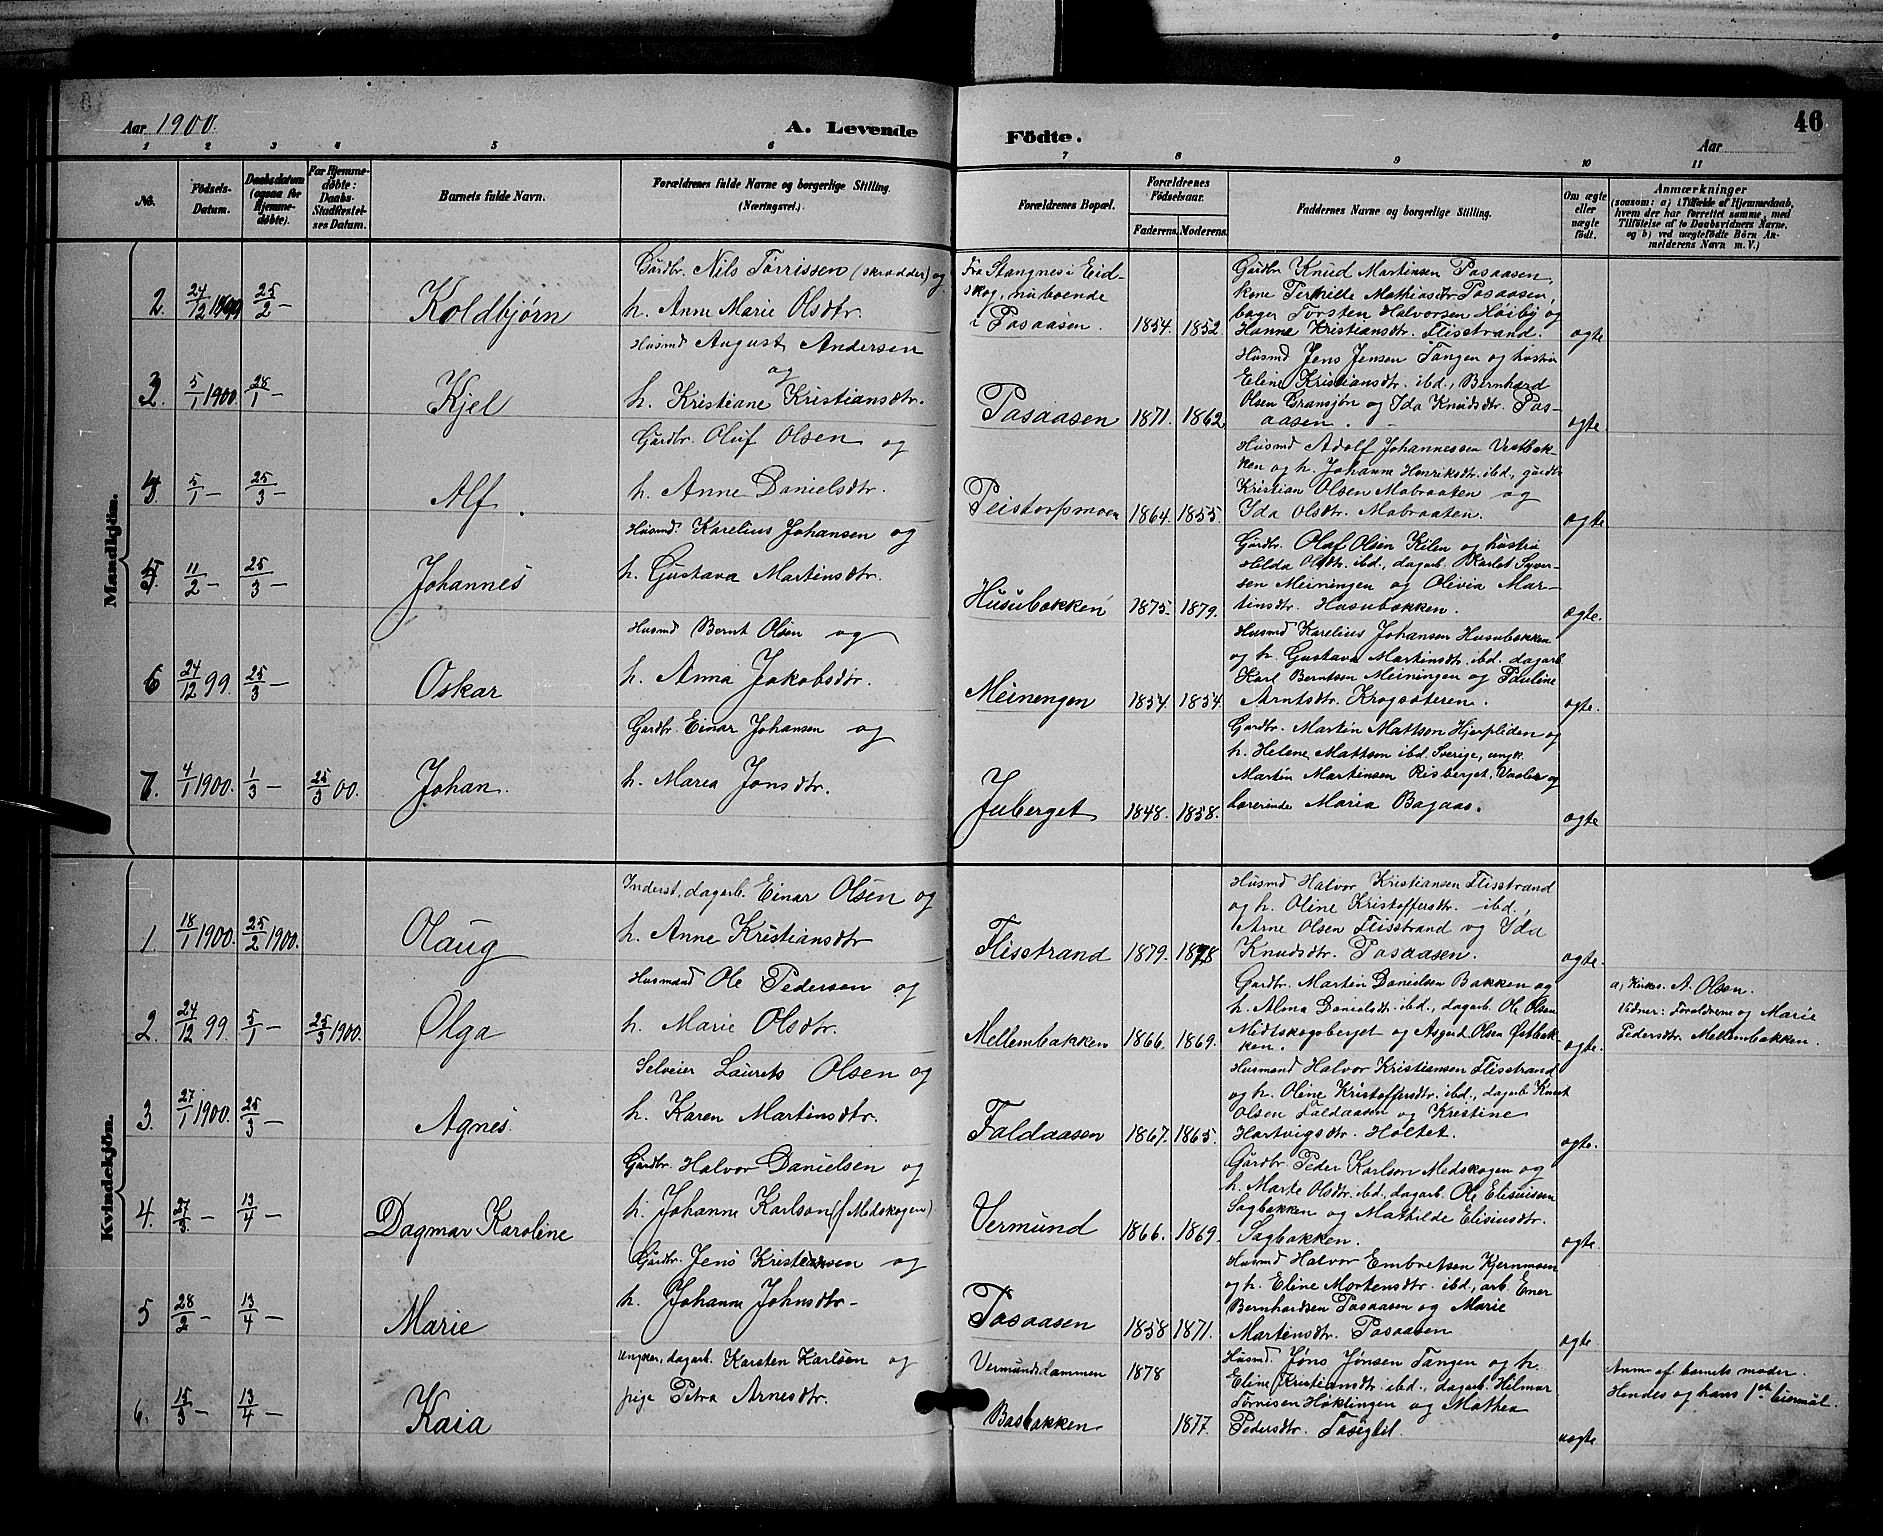 Aar 1900. A. Levende Födte. Aar 46
1 2 3 4 5 6 7 8 9 10 11
No. Födsels-Datum. Daabsdatum (ogsaa for Hjemme-døbte). For Hjemme-døbte: Daabs-Stadfæstel-ses Datum. Barnets fulde Navn. Forældrenes fulde Navne og borgerlige Stilling. (Næringsvei.) Forældrenes Bopæl. Forældrenes Fødselsaar. Faderens. Moderens. Faddernes Navne og borgerlige Stilling. Om ægte eller uægte født. Anmærkninger
(saasom: a) i Tilfælde af Hjemmedaab, hvem der har forrettet samme, med Tilføielse af to Daabsvidners Navne. og b) ved uægtefødte Börn Anmelderens Navn m. V.)
Mandkjön.
2. 24/12 1899 25/2 — Koldbjørn
Gårdbr. Nils Tørrissen (skrædder) og
h. Anne Marie Olsdtr.
Fra Stangnes i Eid-
skog, nu boende
i Pasaasen. 1854. 1852.
Gårdbr. Knud Martinsen Pasaasen,
kone Pernille Mathiasdtr. Pasaasen,
bager Torsten Halvorsen Høiby og
Hanna Kristiansdtr. Flisstrand.
ægte
3. 5/1 1900. 28/1 — Kjel
Husmd August Andersen
og
h. Kristiane Kristiansdtr.
Pasaasen 1871. 1862
Husmd Jens Jensen Tangen og hustru
Eline Kristiansdtr. ibd., Bernhard
Olsen Gransjøn og Ida Knudsdtr. Pas-
aasen.
ægte.
4. 5/1 — 25/3 — Alf.
Gårdbr. Oluf Olsen og
h. Anne Danielsdtr.
Peistorpmoen 1864. 1855.
Husmd Adolf Johannessen Vestbak-
ken og h. Johanne Henriksdtr. ibd., gårdbr
Kristian Olsen Mobraaten og
Ida Olsdtr. Mobraaten.
ægte
5. 11/2 — 25/3 — Johannes
Husmd. Karelius Johansen og
h. Gustava Martinsdtr.
Husubakken 1875. 1879.
Gårdbr. Olaf Olsen Kilen og hustru
Hilda Olsdtr. ibd., dagarb. Karl Syver-
sen Meiningen og Olivia Mar-
tinsdtr. Husubakken.
ægte.
6 24/12 99. 25/3 — Oskar
Husmd Bernt Olsen og
h. Anna Jakobsdtr.
Meinengen 1854. 1854.
Husmd Karelius Johansen Husubakken
og h. Gustava Martinsdtr. ibd. dagarb.
Karl Berntsen Meiningen og Pauline
Arntsdtr. Krogsæteren.
ægte.
7. 4/1 1900. 1/3 — 25/3 00. Johan.
Gårdbr. Einar Johansen og
h. Marea Jonsdtr.
Juberget 1848. 1858.
Gårdbr. Martin Mattson Hjerpliden og
h. Helene Mattson ibd. Sverige, ungk.
Martin Martinsen Risberget, Vaaler og
lærerinde Maria Bagaas.
ægte
Kvindekjön.
1. 18/1 1900. 25/2 1900. Olaug
Inderst, dagarb. Einar Olsen og
h. Anne Kristiansdtr
Flisstrand 1879. 1878
Husmd Halvor Kristiansen Flisstrand
og h. Oline Kristoffersdtr. ibd.,
Arne Olsen Flisstrand og Ida
Knudsdtr. Pasaasen.
ægte.
2. 24/12 99. 5/1 — 25/3 1900. Olga
Husmand Ole Pedersen og
h. Marie Olsdtr.
Mellembakken 1866. 1869.
Gårdbr. Martin Danielsen Bakken og
h. Alma Danielsdtr. ibd., dagarb. Ole Olsen
Midtskogsberget og Asgud Olsen Østbak-
ken.
ægte.
a, Kirkes. A. Olsen.
Vidner: Forældrene og Marie
Pedersdtr. Mellembakken.
3. 27/1 1900. 25/3 — Agnes.
Selveier Laurits Olsen og
h. Karen Martinsdtr.
Faldaasen 1867. 1865
Husmand Halvor Kristiansen Flisstrand
og h. Oline Kristoffersdtr. ibd., dagarb Knut
Olsen Faldaasen og Kristine
Hartvigsdtr. Holtet.
ægte.
4. 27/3 — 13/4 — Dagmar Karoline
Gårdbr. Halvor Danielsen og
h. Johanne Karlson (f Medskogen)
Vermund 1866. 1869.
Gårdbr Peder Karlson Medskogen og
h. Marte Olsdtr. ibd., dagarb. Ole Elisiussen
Sagbakken og Mathilde Elisiusdtr.
Sagbakken.
ægte.
5 28/2 — 13/4 — Marie
Gårdbr. Jens Kristiansen og
h. Johanne Johnsdtr —
Pasaasen 1858 1871.
Husmd Halvor Embretsen Kjernmoen
og h. Eline Mortensdtr. ibd., arb. Ener
Bernhardsen Pasaasen og Marie
Martinsdtr. Pasaasen
ægte.
6. 15/3 — 13/4 — Kaia
Ungkar, dagarb. Karsten Karlsen og
pige Petra Arnesdtr.
Vermundsdammen 1878
Basbakken 1877.
Husmd. Jøns Jønsen Tangen og h.
Eline Kristiansdtr. ibd., dagarb. Hilmar
Tørrisen Høklingen og Mathea
Pedersdtr.
uægte
Anm. af barnets moder.
Hendes og hans 1ste leiermål.